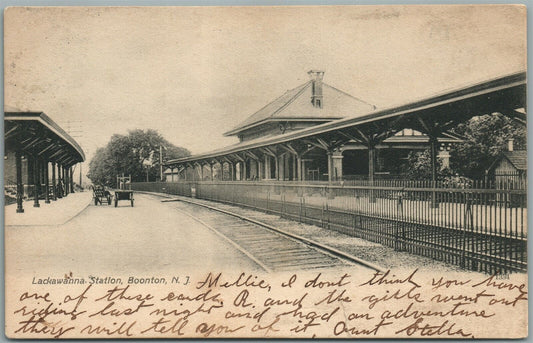 Lackawanna Station, Boonton, N. J.
Millie, I don't think you have
one of these cards, R. and the girls went out
riding last night and had an adventure
they will tell you of it, Aunt Stella.